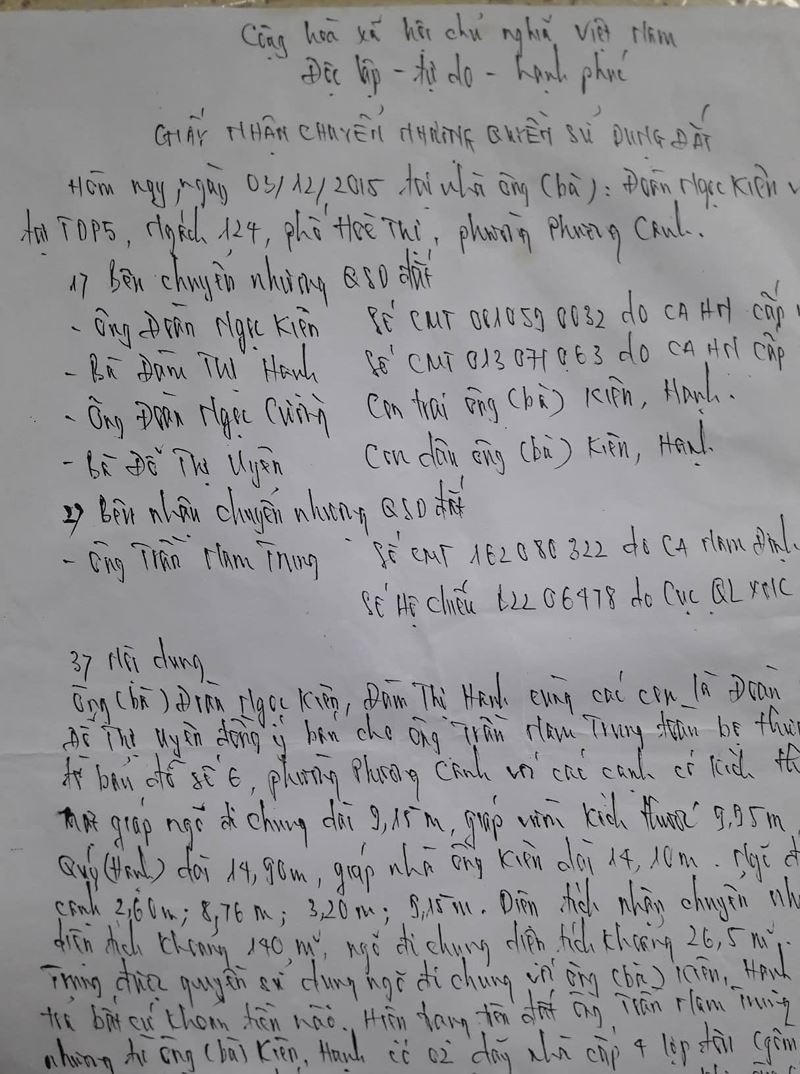 Cộng hoà xã hội chủ nghĩa Việt Nam
Độc lập - tự do - hạnh phúc
GIẤY NHẬN CHUYỂN NHƯỢNG QUYỀN SỬ DỤNG ĐẤT
Hôm nay, ngày 03/12/2015 tại nhà ông (bà): Đoàn Ngọc Kiên
tại TDP5, Ngách 124, phố Hoè Thị, phường Phương Canh.
1) Bên chuyển nhượng QSD đất
- Ông Đoàn Ngọc Kiên Số CMT 001059 0032 do CA HN cấp
- Bà Đàm Thị Hạnh Số CMT 013071063 do CA HN cấp
- Ông Đoàn Ngọc Cường Con trai ông (bà) Kiên, Hạnh.
- Bà Đỗ Thị Uyên Con dâu ông (bà) Kiên, Hạnh
2) Bên nhận chuyển nhượng QSD đất
- Ông Trần Nam Trung Số CMT 162080322 do CA Nam Định
Số Hộ chiếu 62206478 do Cục QLXNC
3) Nội dung
Ông (bà) Đoàn Ngọc Kiên, Đàm Thị Hạnh cùng các con là Đoàn
Đỗ Thị Uyên đồng ý bán cho ông Trần Nam Trung toàn bộ
tờ bản đồ số 6, phường Phương Canh với các cạnh có kích
Mặt giáp ngõ đi chung dài 9,15m, giáp vườn kích thước 9,95m,
Quý (Hạnh) dài 14,90m, giáp nhà ông Kiên dài 14,10m. Ngõ
cạnh 2,60m; 8,76m; 3,20m; 9,15m. Diện tích nhận chuyển
diện tích khoảng 140 m², ngõ đi chung diện tích khoảng 26,5 m².
Trung được quyền sử dụng ngõ đi chung với ông (bà) Kiên, Hạnh
trả bất cứ khoản tiền nào. Hiện trạng trên đất ông Trần Nam Trung
nhượng từ ông (bà) Kiên, Hạnh có 02 dãy nhà cấp 4 lợp (gồm